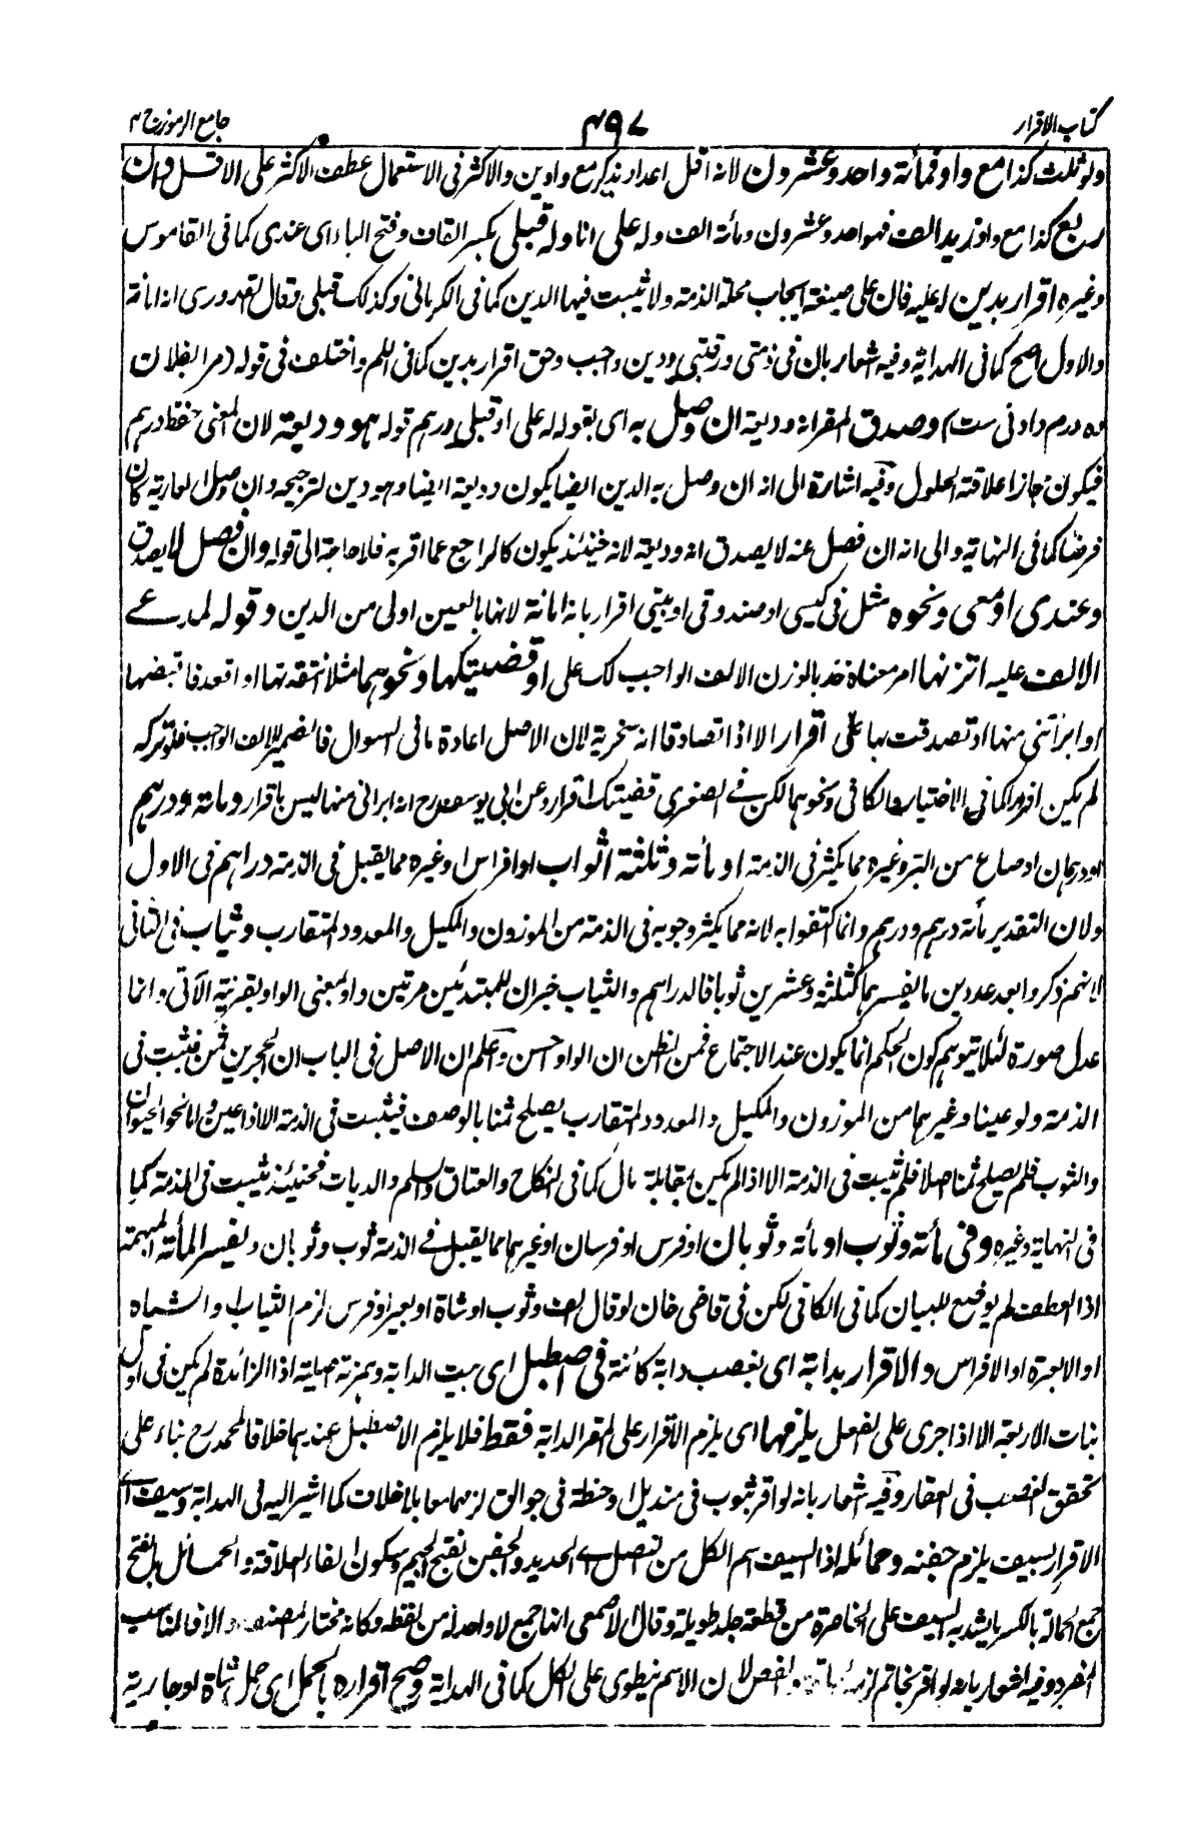 كتاب الاقرار
٤٩٧
جامع الرموز ج ٢
ولو ثلث كذا مع واو فمأته واحد وعشرون لانه اقل اعداد يذكر مع واوين والاكثر فى الاستعمال عطف الاكثر على الاقل وان
ربع كذا مع واو زيد الف فهو احد وعشرون ومأته الف وله على انا وله قبلى بكسر القاف وفتح الباء اى عندى كما فى القاموس
وغيره اقرار بدين اعليه فان على صيغة ايجاب محله الذمة ولا يثبت فيها الدين كما فى الكرمانى وكذلك قبلى وقال القدورى انه امانة
والاول اصح كما فى الهداية وفيه شعار بان فى ذمتى ورقبتى ودين واجب وحق اقرار بدين كما فى اللم واختلف فى قوله (مرا بفلان
ده درم دادنى ست) وصدق المقر انه وديعة ان وصل به اى بقوله له على او قبلى درهم قوله هو وديعة لان المعنى حفظ درهم
فيكون مجازا علاقته الحلول وفيه اشارة الى انه ان وصل به الدين ايضا يكون وديعة ايضا وهو دين لترجيحه وان وصل العارية كان
قرضا كما فى النهاية والى انه ان فصل عنه لا يصدق انه وديعة لانه حينئذ يكون كالراجع عما اقر به فلا حاجة الى قوله وان فصل لا يصدق
وعندى او معى ونحوه مثل فى كيسى او صندوقى او بيتى اقرار بانه امانة لانها بالعين اولى من الدين وقوله لمدعى
الالف عليه اتزنها امر معناه خذ بالوزن الالف الواجب لك على او قضيتكها ونحوهما مثلا انتقدتها او اقعد فاقبضها
او ابرأتنى منها او تصدقت بها على اقرار الا اذا تصادقا انه سخرية لان الاصل اعادة ما فى السوال فالضمير للالف الواجب فلو تركه
لم يكن اقرارا كما فى الاختيار والكافى ونحوهما لكن فى الصغرى قضيتك اقرار وعن ابى يوسف رح انه ابرانى منها ليس باقرار ومائة ودرهم
او درهمان او صاع من البر وغيره مما يكثر فى الذمة او مأته وثلثة اثواب او افراس او غيره مما يقبل فى الذمة دراهم فى الاول
ولان التقدير مأته درهم ودرهم وانما اكتفوا به لانه مما يكثر وجوبه فى الذمة من الموزون والمكيل والمعدود المتقارب وثياب فى الثانى
لانهم ذكروا بعد عددين ما يفسرهما كثلثة وعشرين ثوبا فالدراهم والثياب خبران للمبتدئين مرتين واو بمعنى الواو بقرينة الآتى وانما
عدل صورة لئلا يتوهم كون الحكم انما يكون عند الاجتماع فمن الظن ان الواو احسن واعلم ان الاصل فى الباب ان الحجرين ثمن فيثبت فى
الذمة ولو عينا وغيرهما من الموزون والمكيل والمعدود المتقارب يصلح ثمنا بالوصف فيثبت فى الذمة الا اذا عين واما نحو الحيوان
والثوب فلم يصلح ثمنا اصلا فلم يثبت فى الذمة الا اذا لم يكن بمقابلة مال كما فى النكاح والعتاق والسلم والديات فحينئذ يثبت فى الذمة كما
فى النهاية وغيره وفى مأته وثوب او مأته وثوبان او فرس او فرسان او غيرهما مما يقبل فى الذمة ثوب وثوبان ويفسر المأته المبهمة
اذا العطف لم يوضع للبيان كما فى الكافى لكن فى قاضى خان لو قال الف وثوب او شاة او بعير او فرس لزم الثياب والشياه
او الابعرة او الافراس والاقرار بدابة اى بغصب دابة كائنة فى اصطبل اى بيت الدابة وهمزته اصلية اذا الزائدة لم يكن فى اول
بنات الاربعة الا اذا جرى على الفعل يلزمها اى يلزم الاقرار على المقر الدابة فقط فلا يلزم الاصطبل عندهما خلافا لمحمد رح بناء على
تحقق الغصب فى العقار وفيه شعار بانه لو اقر بثوب فى منديل او حنطة فى جوالق لزمهما معا بلا خلاف كما اشير اليه فى الهداية وسيف اى
الاقرار بسيف يلزم جفنه وحمائله اذا السيف اسم الكل من نصل اى الحديد والجفن بفتح الجيم وسكون الفاء العلاقة والحمائل بالفتح
جمع الحمالة بالكسر ما يشد به السيف على الخاصرة من قطعة جلد طويلة وقال الاصمعى انها جمع لا واحد له من لفظه وكانه مختار المصنف والا فالمناسب
المفرد وفيه اشعار بانه لو اقر بخاتم لزمه والفص لان الاسم ينطوى على الكل كما فى الهداية وصح اقراره بالحمل اى حمل شاة او جارية